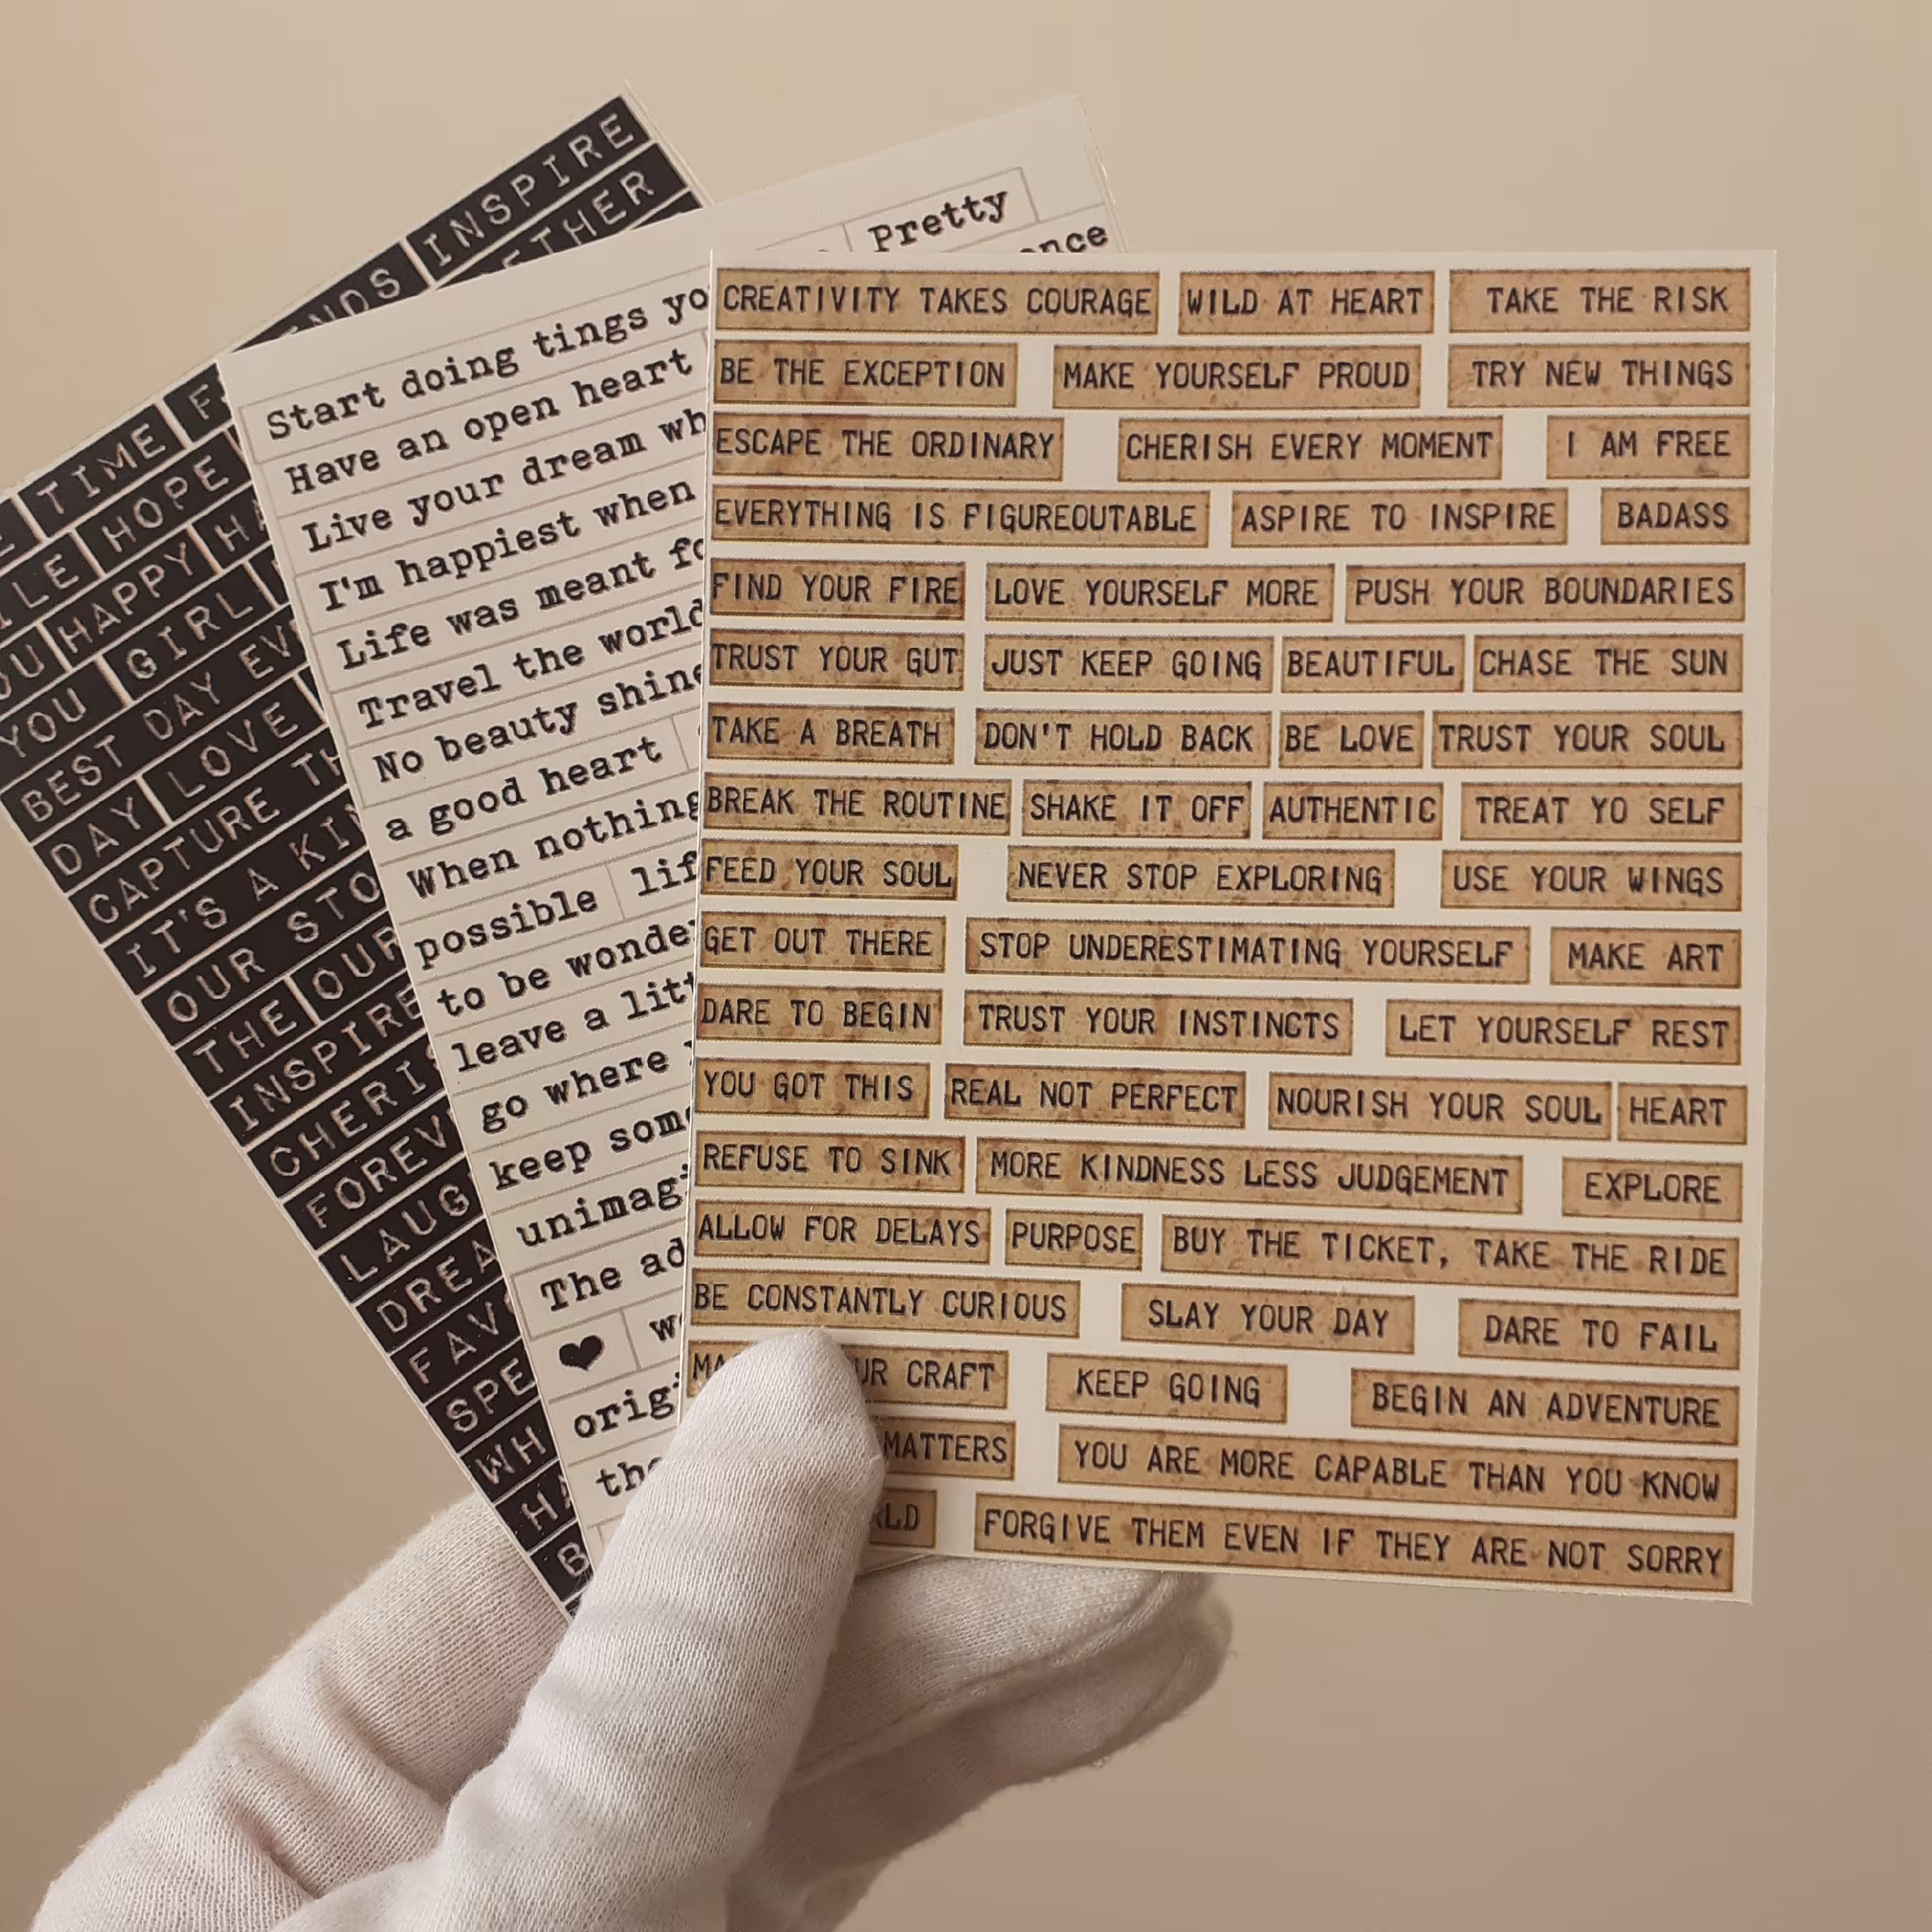 INSPIRE
TIME
HOPE
HAPPY
YOU GIRL
BEST DAY
DAY LOVE
CAPTURE
IT'S A
OUR
THE OUR
INSPIRE
Pretty
Start doing tings
Have an open heart
Live your dream
I'm happiest when
Life was meant
Travel the world
No beauty
a good heart
When nothing
possible
to be
leave a
go where
keep
The
♥
CREATIVITY TAKES COURAGE WILD AT HEART TAKE THE RISK
BE THE EXCEPTION MAKE YOURSELF PROUD TRY NEW THINGS
ESCAPE THE ORDINARY CHERISH EVERY MOMENT I AM FREE
EVERYTHING IS FIGUREOUTABLE ASPIRE TO INSPIRE BADASS
FIND YOUR FIRE LOVE YOURSELF MORE PUSH YOUR BOUNDARIES
TRUST YOUR GUT JUST KEEP GOING BEAUTIFUL CHASE THE SUN
TAKE A BREATH DON'T HOLD BACK BE LOVE TRUST YOUR SOUL
BREAK THE ROUTINE SHAKE IT OFF AUTHENTIC TREAT YO SELF
FEED YOUR SOUL NEVER STOP EXPLORING USE YOUR WINGS
GET OUT THERE STOP UNDERESTIMATING YOURSELF MAKE ART
DARE TO BEGIN TRUST YOUR INSTINCTS LET YOURSELF REST
YOU GOT THIS REAL NOT PERFECT NOURISH YOUR SOUL HEART
REFUSE TO SINK MORE KINDNESS LESS JUDGEMENT EXPLORE
ALLOW FOR DELAYS PURPOSE BUY THE TICKET, TAKE THE RIDE
BE CONSTANTLY CURIOUS SLAY YOUR DAY DARE TO FAIL
CRAFT KEEP GOING BEGIN AN ADVENTURE
MATTERS YOU ARE MORE CAPABLE THAN YOU KNOW
FORGIVE THEM EVEN IF THEY ARE NOT SORRY